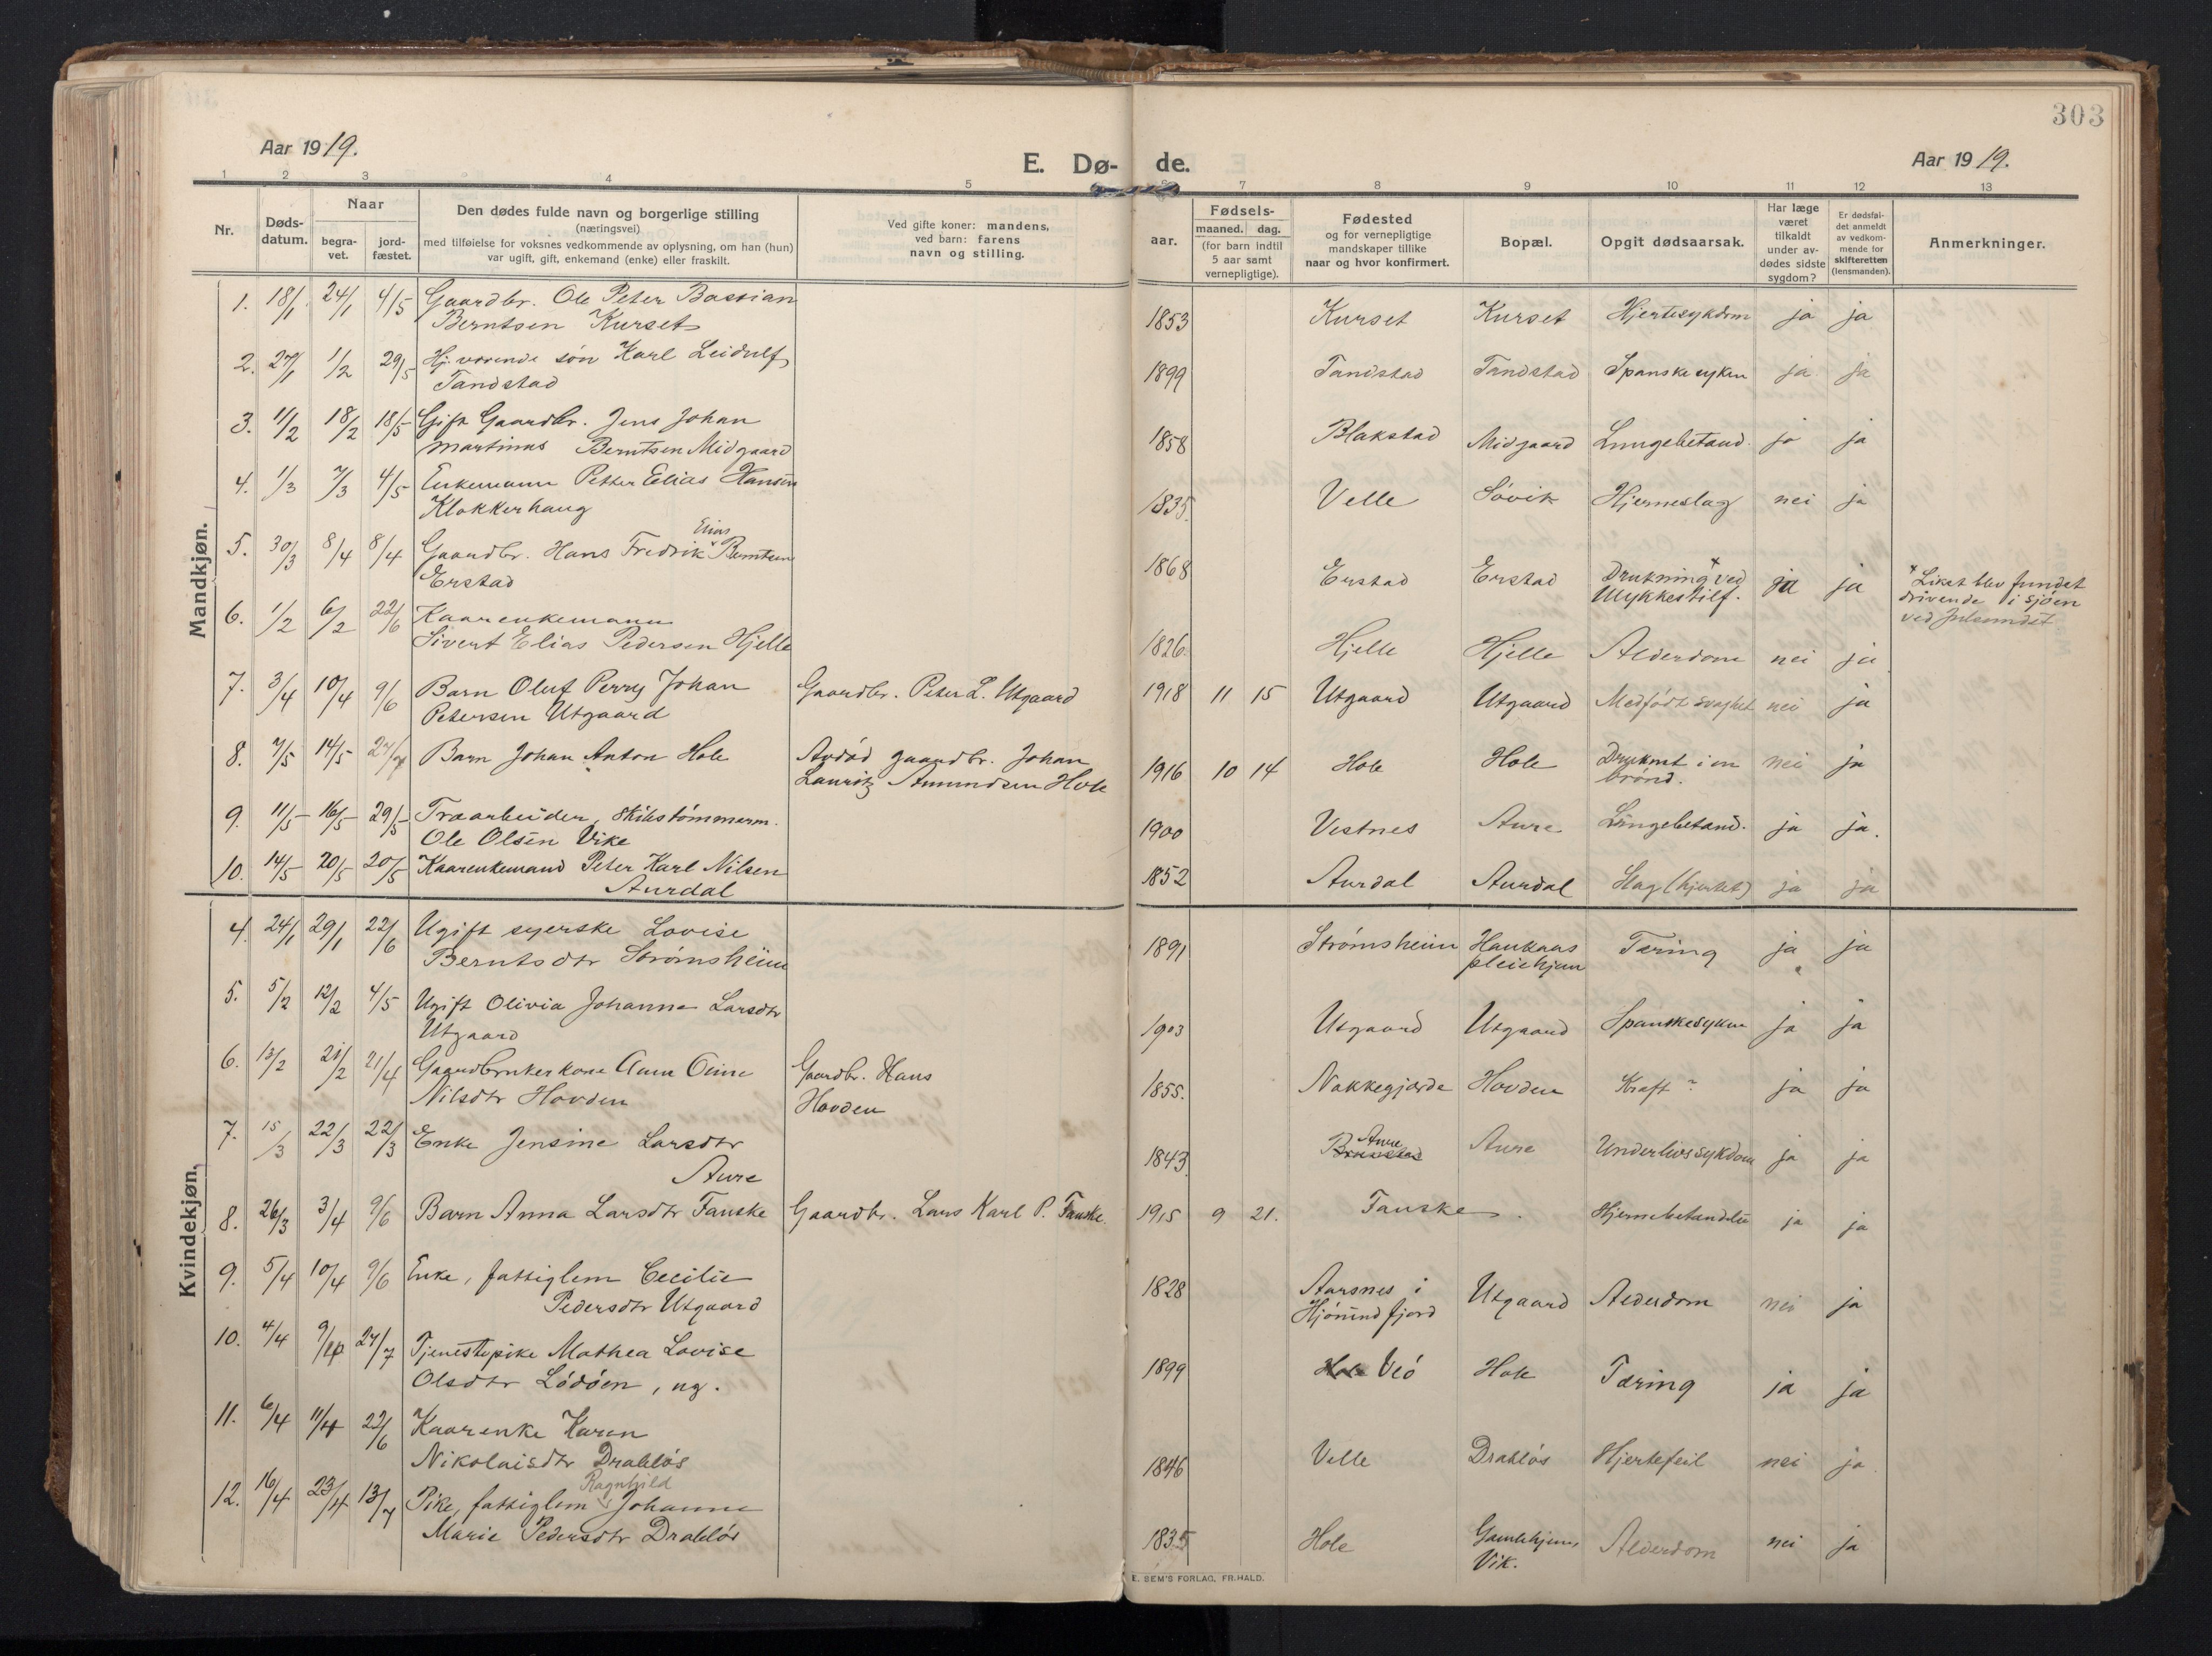 303
Aar 1919.
E. Dø- de.
Aar 1919.
1 2 3 4 5 6 7 8 9 10 11 12 13
Nr.
Døds-
datum.
Naar
begra-
vet.
jord-
fæstet.
Den dødes fulde navn og borgerlige stilling
(næringsvei)
med tilføielse for voksnes vedkommende av oplysning, om han (hun)
var ugift, gift, enkemand (enke) eller fraskilt.
Ved gifte koner: mandens,
ved barn: farens
navn og stilling.
aar.
Fødsels-
maaned. dag.
(for barn indtil
5 aar samt
vernepligtige).
Fødested
og for vernepligtige
mandskaper tillike
naar og hvor konfirmert.
Bopæl.
Opgit dødsaarsak.
Har læge
været
tilkaldt
under av-
dødes sidste
sygdom?
Er dødsfal-
det anmeldt
av vedkom-
mende for
skifteretten
(lensmanden).
Anmerkninger.
Mandkjøn.
1. 18/1 24/1 4/5 Gaardbr. Ole Peter Bassian
Berntsen Kurset
1853 Kurset Kurset Hjertesykdom ja ja
2. 27/1 1/2 29/5 Hj. værende søn Karl Leidulf
Tandstad
1899 Tandstad Tandstad Spanskesyken ja ja
3. 11/2 18/2 18/5 Gift Gaardbr. Jens Johan
Martinus Berntsen Midgaard
1858 Blakstad Midgaard Lungebetænd. ja ja
4. 1/3 7/3 4/5 Enkemann Petter Elias Hansen
Klokkerhaug
1835. Velle Søvik Hjerneslag nei ja
5. 30/3 8/4 8/4 Gaardbr. Hans Fredrik Elias Berntsen
Erstad
1868 Erstad Erstad Drukning x ved
Ulykkestilf. ja ja
x Liket blev fundet
drivende i sjøen
ved Julsundet
6. 1/2 6/2 22/6 Kaarenkemann
Sivert Elias Pedersen Hjelle
1826. Hjelle Hjelle Alderdom nei ja
7. 3/4 10/4 9/6 Barn Oluf Perry Johan
Petersen Utgaard
Gaardbr. Peter L. Utgaard
1918 11 15 Utgaard Utgaard Medfødt svaghet nei ja
8. 7/5 14/5 27/7 Barn Johan Anton Hole
Avdød gaardbr. Johan
Lauritz Amundsen Hole
1916 10 14 Hole Hole Druknet i en
brønd. nei ja
9. 11/5 16/5 29/5 Træarbeider, skibstømmerm.
Ole Olsen Vike
1900 Vestnes Aure Lungebetænd. ja ja.
10. 14/5 20/5 20/5 Kaarenkemand Peter Karl Nilsen
Aurdal
1852 Aurdal Aurdal Slag (hjertet) ja ja
Kvindekjøn.
4. 24/1 29/1 22/6 Ugift syerske Lovise
Berntsdtr Strømsheim
1891 Strømsheim Haukaas
pleiehjem Tæring ja ja
5. 5/2 12/2 4/5 Ugift Olivia Johanne Larsdtr
Utgaard
1903 Utgaard Utgaard Spanskesyken ja ja
6. 13/2 21/2 21/4 Gaardbrukerkone Anne Oline
Nilsdtr Hovden
Gaardbr. Hans
Hovden
1855. Nakkegjærde Hovden Kræft? ja ja
7. 15/3 22/3 22/3 Enke Jensine Larsdtr
Aure
1843 Aure Aure Underlivssykdom ja ja
8. 26/3 3/4 9/6 Barn Anna Larsdtr Fauske
Gaardbr. Lars Karl P. Fauske.
1915 9 21. Fauske. Hjernebetændelse ja ja
9. 5/4 10/4 9/6 Enke, fattiglem Cecilie
Pedersdtr Utgaard
1828 Aarsnes i
Hjørundfjord Utgaard Alderdom nei ja
10. 4/4 9/4 27/7 Tjenestepike Mathea Lovise
Olsdtr Lødøen, ug.
1899 Veø Hole Tæring ja ja
11. 6/4 11/4 22/6 Kaarenke Karen
Nikolaisdtr Drabløs
1846 Velle Drabløs Hjertefeil nei ja
12. 16/4 23/4 13/7 Pike, fattiglem Ragnhild Johanne
Marie Pedersdtr Drabløs
1835 Hole Gamlehjem,
Vik. Alderdom nei ja
E. SEM'S FORLAG, FR.HALD.